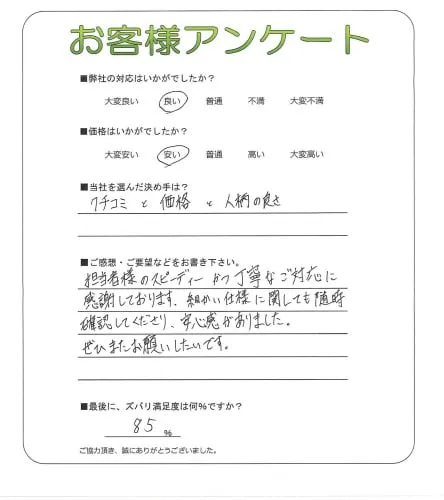 お客様アンケート
■弊社の対応はいかがでしたか?
大変良い 良い 普通 不満 大変不満
■価格はいかがでしたか?
大変安い 安い 普通 高い 大変高い
■当社を選んだ決め手は?
クチコミ と 価格 と 人柄の良さ
■ご感想・ご要望などをお書き下さい。
担当者様のスピーディーかつ丁寧なご対応に
感謝しております。細かい仕様に関しても随時
確認してくださり、安心感がありました。
ぜひまたお願いしたいです。
■最後に、ズバリ満足度は何%ですか?
85 %
ご協力頂き、誠にありがとうございました。